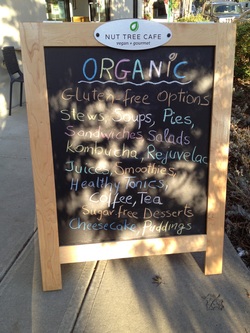 NUT TREE CAFE
vegan + gourmet
ORGANIC
Gluten-free Options
Stews, Soups, Pies,
Sandwiches Salads
Kombucha, Rejuvelac
Juices, Smoothies,
Healthy Tonics,
Coffee, Tea
Sugar-free Desserts
Cheesecake, Puddings